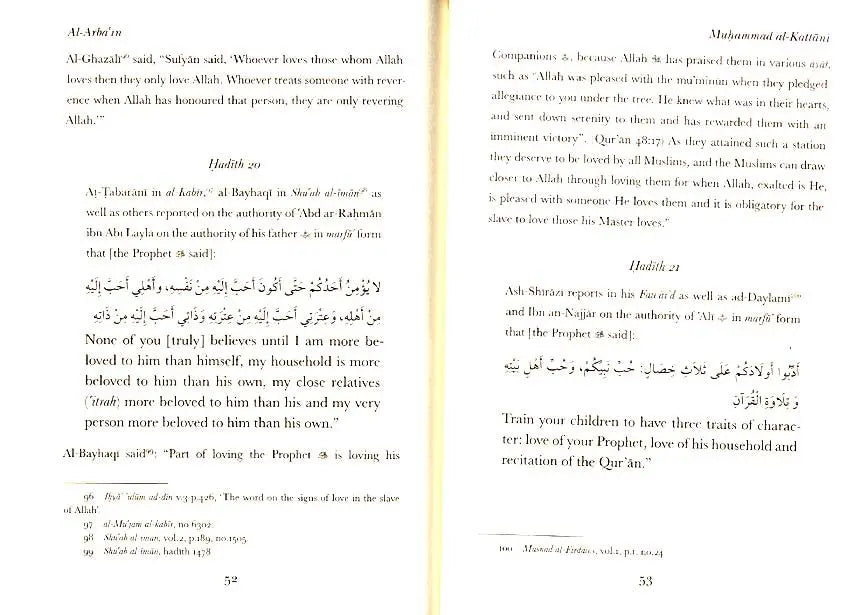 Al-Arba'ın
Al-Ghazālī⁹⁶ said, "Sufyān said, 'Whoever loves those whom Allah
loves then they only love Allah. Whoever treats someone with rever-
ence when Allah has honoured that person, they are only revering
Allah.'"
Ḥadīth 20
Aṭ-Ṭabarānī in al-kabīr,⁹⁷ al-Bayhaqī in Shu'ab al-īmān⁹⁸ as
well as others reported on the authority of 'Abd ar-Raḥmān
ibn Abī Layla on the authority of his father in marfū' form
that [the Prophet ﷺ said]:
لَا يُؤْمِنُ أَحَدُكُمْ حَتَّى أَكُونَ أَحَبَّ إِلَيْهِ مِنْ نَفْسِهِ، وَأَهْلِي أَحَبَّ إِلَيْهِ
مِنْ أَهْلِهِ، وَعِتْرَتِي أَحَبَّ إِلَيْهِ مِنْ عِتْرَتِهِ وَذَاتِي أَحَبَّ إِلَيْهِ مِنْ ذَاتِهِ
None of you [truly] believes until I am more be-
loved to him than himself, my household is more
beloved to him than his own, my close relatives
('itrah) more beloved to him than his and my very
person more beloved to him than his own."
Al-Bayhaqī said⁹⁹: "Part of loving the Prophet ﷺ is loving his
96 Iḥyā' 'ulūm ad-dīn v.3 p.426, 'The word on the signs of love in the slave
of Allah'
97 al-Mu'jam al-kabīr, no 6302.
98 Shu'ab al-īmān, vol.2, p.189, no.1505.
99 Shu'ab al-īmān, hadīth 1478
52
Muḥammad al-Kattānī
Companions, because Allah has praised them in various ayāt,
such as "Allah was pleased with the mu'minūn when they pledged
allegiance to you under the tree. He knew what was in their hearts,
and sent down serenity to them and has rewarded them with an
imminent victory". Qur'ān 48:17) As they attained such a station
they deserve to be loved by all Muslims, and the Muslims can draw
closer to Allah through loving them for when Allah, exalted is He,
is pleased with someone He loves them and it is obligatory for the
slave to love those his Master loves."
Ḥadīth 21
Ash-Shīrāzī reports in his Fawā'id as well as ad-Daylamī¹⁰⁰
and Ibn an-Najjār on the authority of 'Alī in marfū' form
that [the Prophet ﷺ said]:
أَدِّبُوا أَوْلَادَكُمْ عَلَى ثَلَاثِ خِصَالٍ: حُبِّ نَبِيِّكُمْ، وَحُبِّ أَهْلِ بَيْتِهِ
وَ تِلَاوَةِ الْقُرْآنِ
Train your children to have three traits of charac-
ter: love of your Prophet, love of his household and
recitation of the Qur'ān."
100 Musnad al-Firdaws, vol.1, p.1, no.24
53